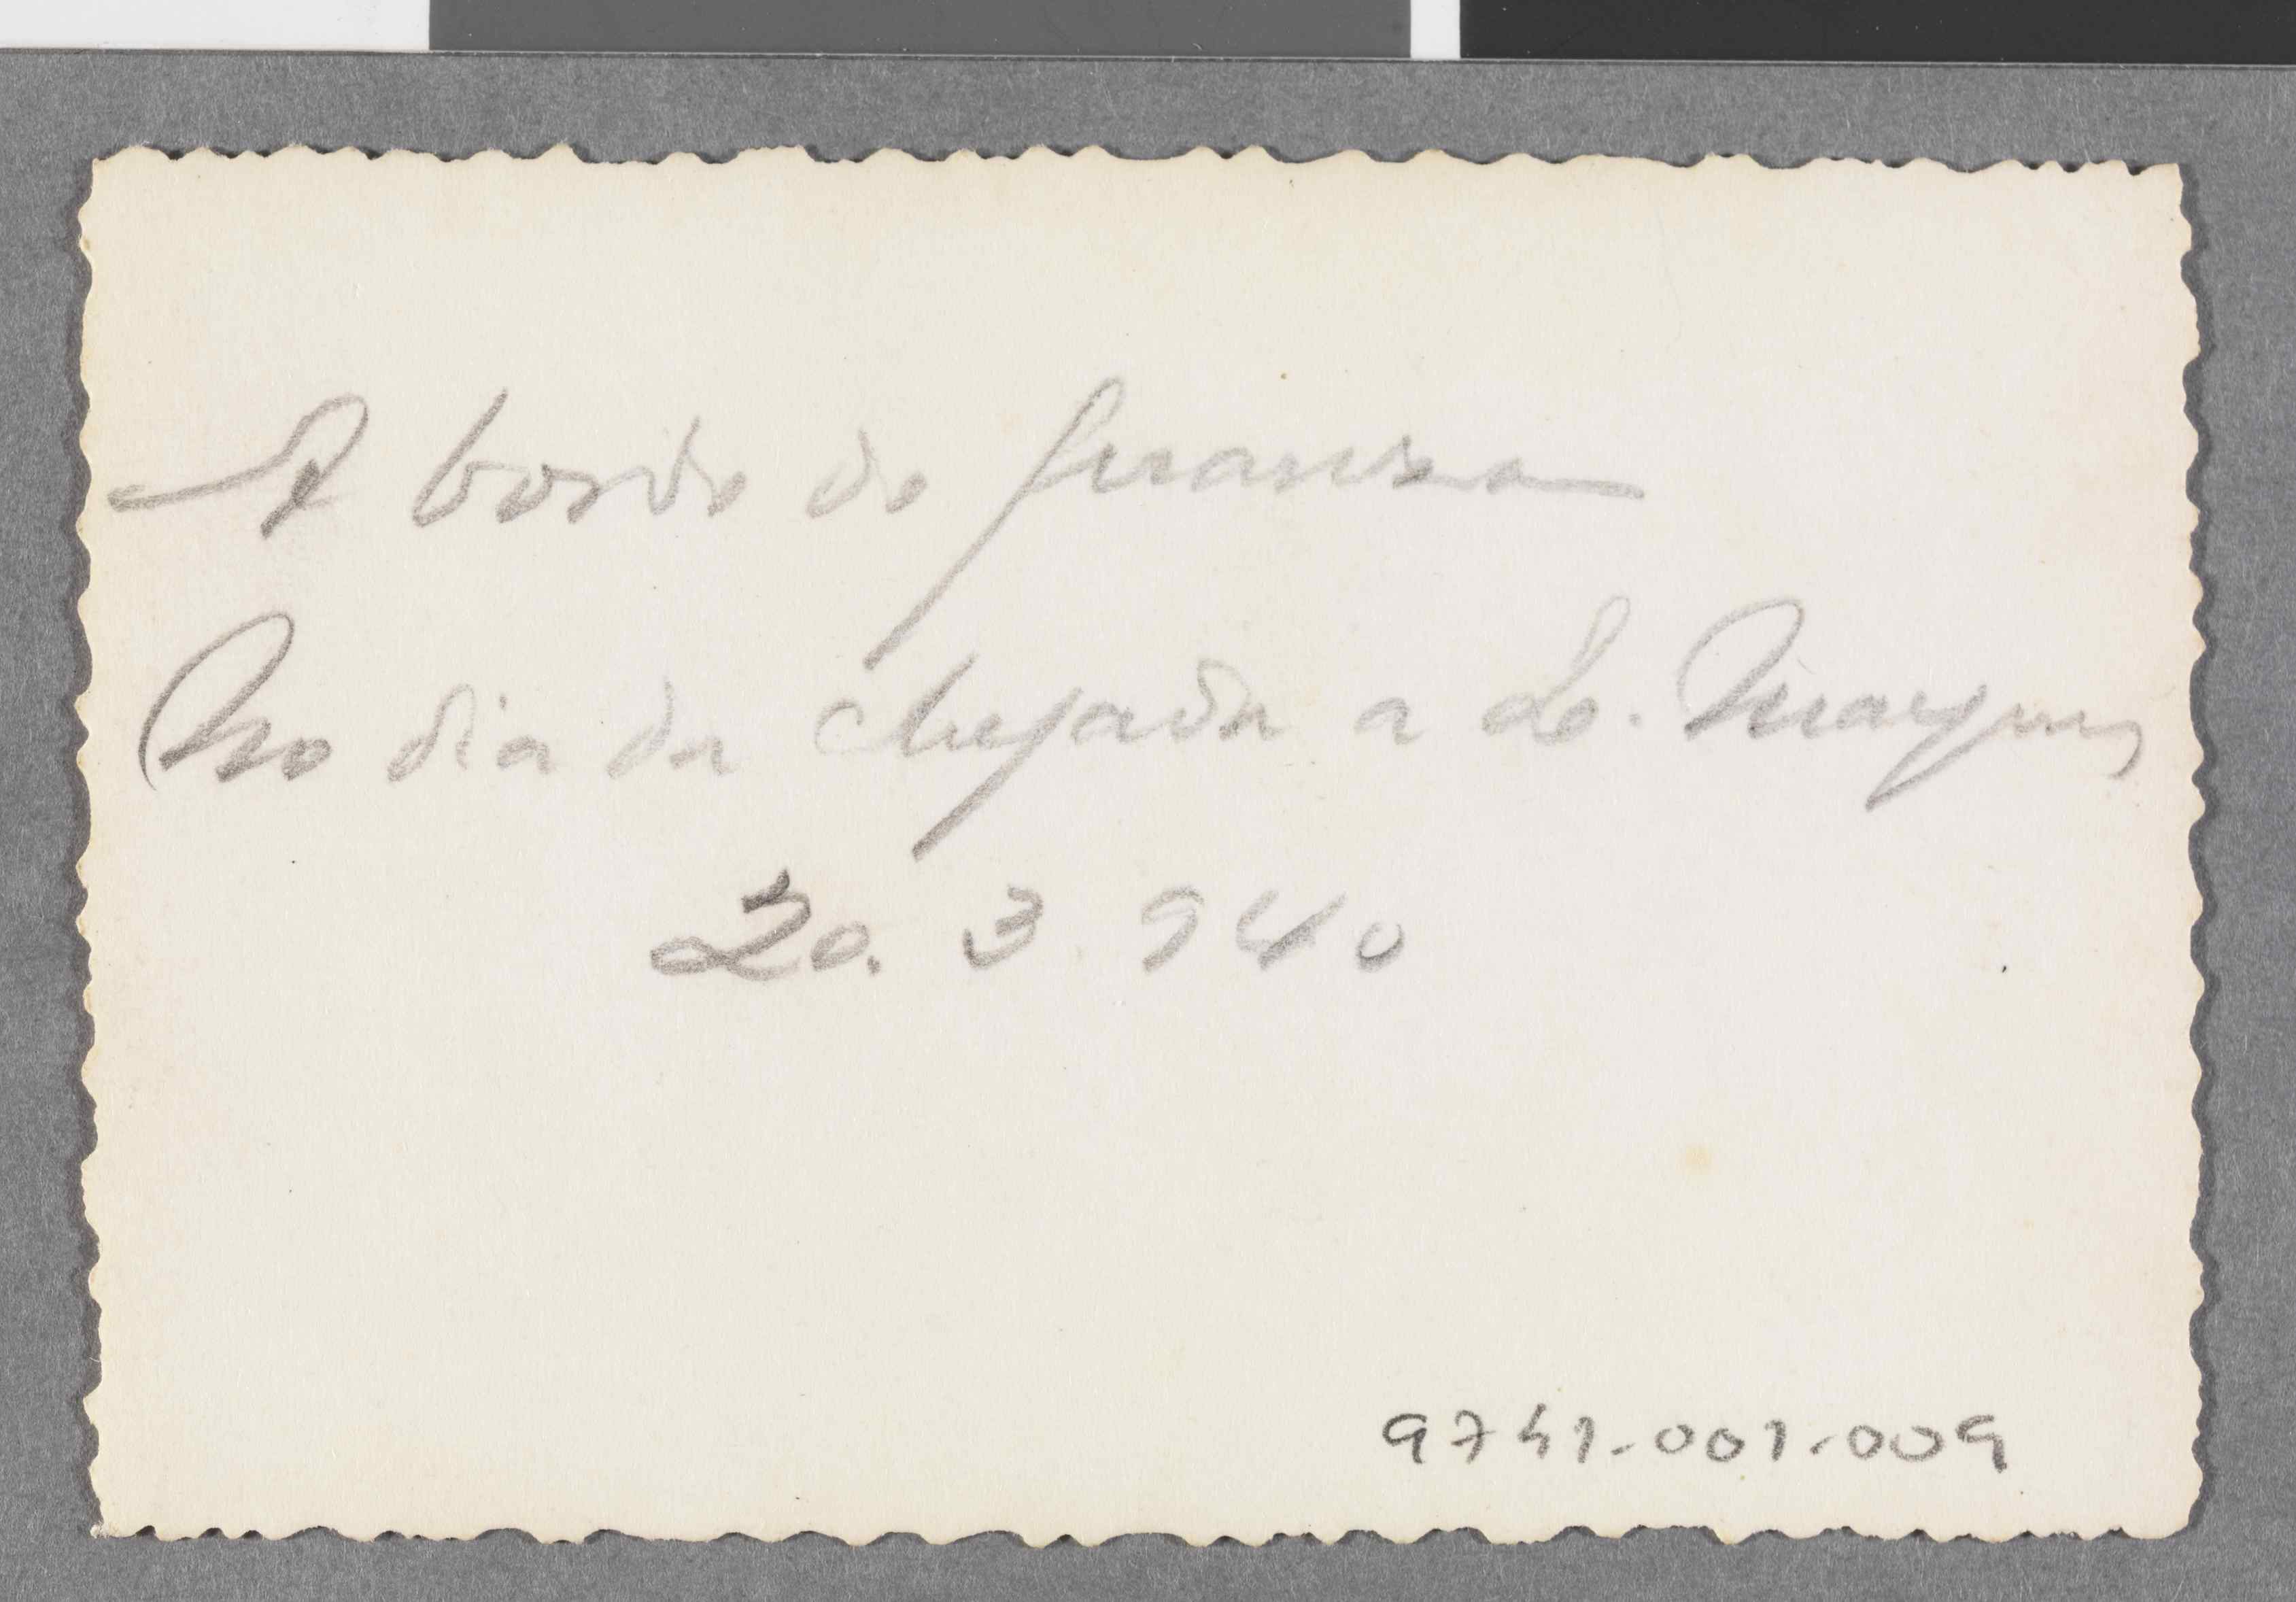 A bordo do Quanza
No dia da chegada a L. Marques
20. 3 940
9741-001-009